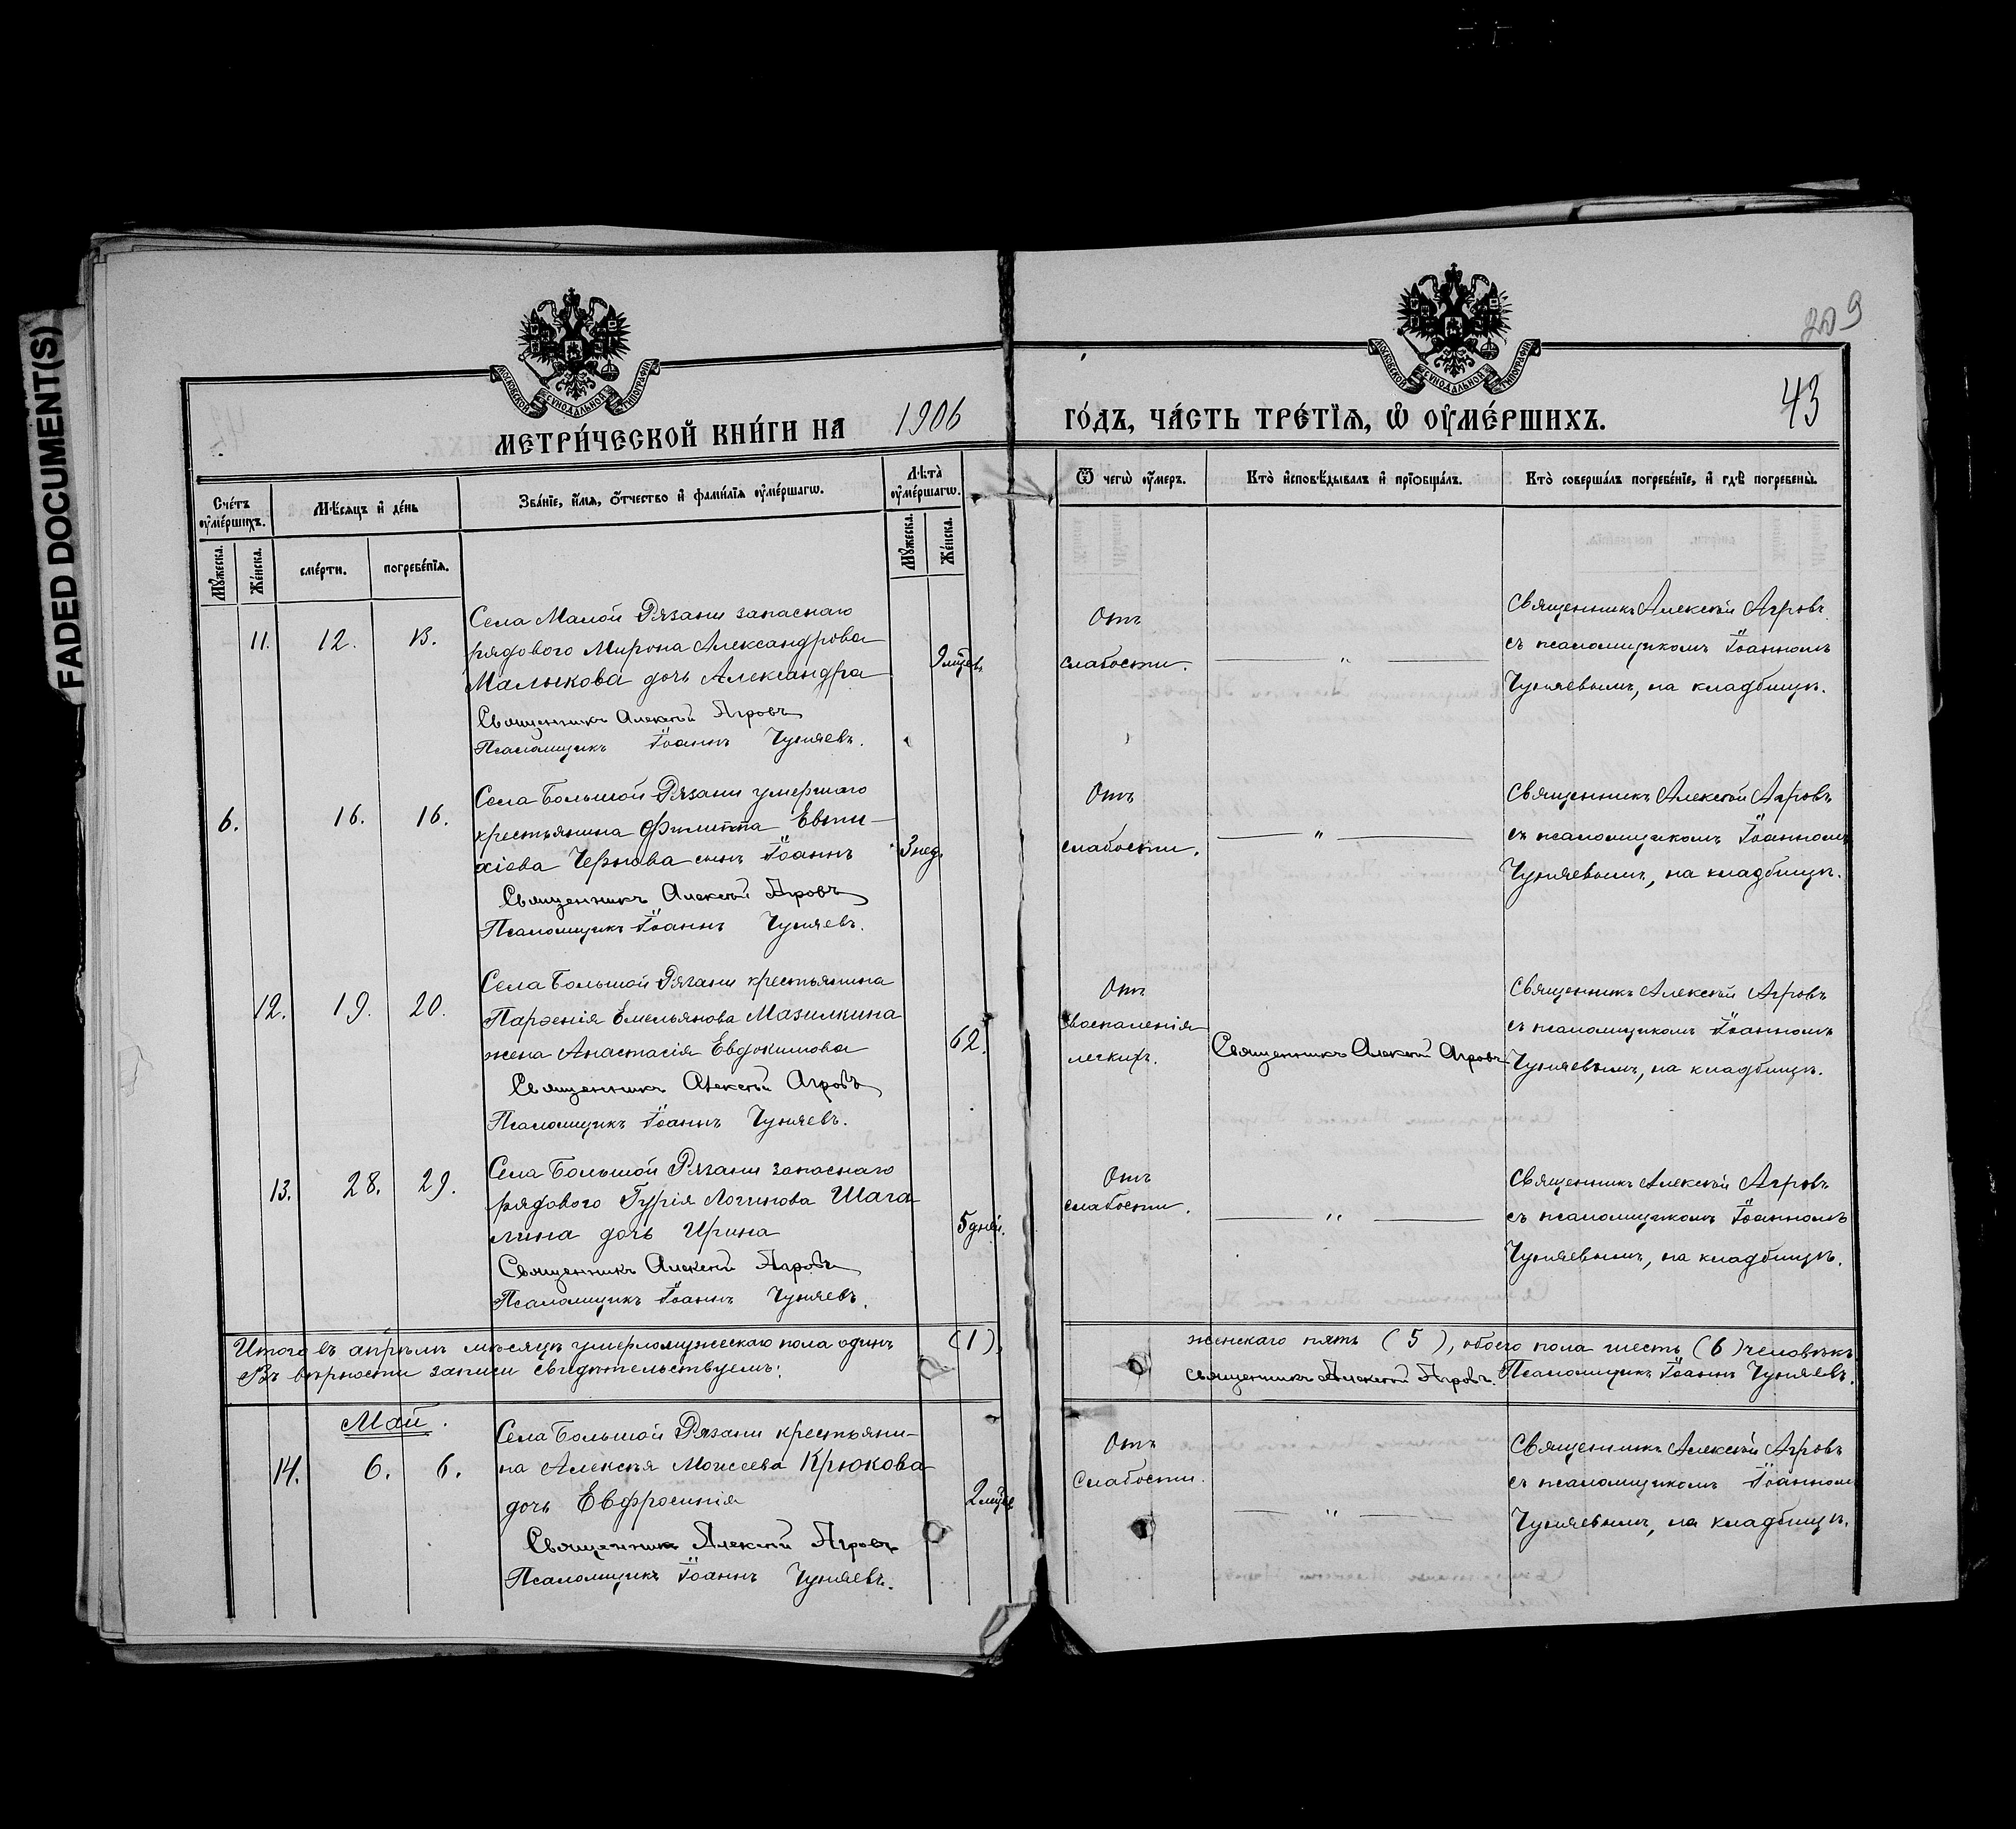 FADED DOCUMENT(S)
209
43
МОСКОВСКОЙ СѴНОДАЛЬНОЙ ТИПОГРАФІИ
МОСКОВСКОЙ СѴНОДАЛЬНОЙ ТИПОГРАФІИ
МЕТРИ́ЧЕСКОЙ КНИ́ГИ НА 1906 ГО́ДЪ, ЧА́СТЬ ТРЕ́ТЇѦ, Ѡ҆ ОУ҆МЕ́РШИХЪ.
Сче́тъ оу҆ме́ршихъ.
Мѣ́сяцъ и҆ де́нь
Зва́нїе, и҆́мя, о҆́тчество и҆ фами́лїя оу҆ме́ршагѡ.
Лѣ́та̀ оу҆ме́ршагѡ.
Ѿ чегѡ̀ оу҆́меръ.
Кто̀ и҆сповѣ́дывалъ и҆ прїѡбща́лъ.
Кто̀ соверша́лъ погребе́нїе, и҆ гдѣ̀ погребены̀.
Мꙋ́жеска.
Же́нска.
сме́рти.
погребе́нїя.
Мꙋ́жеска.
Же́нска.
11. 12. 13.
Села Малой Рязани запаснаго
рядового Мирона Александрова
Малыкова дочь Александра
Священникъ Алексѣй Агровъ
Псаломщикъ Іоаннъ Чуняевъ.
9 мѣсяцев.
Отъ
слабости.
— " —
Священникъ Алексѣй Агровъ
съ псаломщикомъ Іоанномъ
Чуняевымъ, на кладбищѣ.
6. 16. 16.
Села Большой Рязани умершаго
крестьянина Филиппа Евти-
хіева Чернова сынъ Іоаннъ
Священникъ Алексѣй Агровъ
Псаломщикъ Іоаннъ Чуняевъ.
3 нед.
Отъ
слабости.
— " —
Священникъ Алексѣй Агровъ
съ псаломщикомъ Іоанномъ
Чуняевымъ, на кладбищѣ.
12. 19. 20.
Села Большой Рязани крестьянина
Парѳенія Емельянова Мазилкина
жена Анастасія Евдокимова
Священникъ Алексѣй Агровъ
Псаломщикъ Іоаннъ Чуняевъ.
62.
Отъ
воспаленія
легкихъ.
Священникъ Алексѣй Агровъ
Священникъ Алексѣй Агровъ
съ псаломщикомъ Іоанномъ
Чуняевымъ, на кладбищѣ.
13. 28. 29.
Села Большой Рязани запаснаго
рядового Гурія Логинова Шага
лина дочь Ирина
Священникъ Алексѣй Агровъ
Псаломщикъ Іоаннъ Чуняевъ.
5 дней.
Отъ
слабости.
— " —
Священникъ Алексѣй Агровъ
съ псаломщикомъ Іоанномъ
Чуняевымъ, на кладбищѣ.
Итого въ апрѣлѣ мѣсяцѣ умерло мужескаго пола одинъ (1), женскаго пять (5), обоего пола шесть (6) человѣкъ.
Въ вѣрности записи свидѣтельствуемъ: Священникъ Алексѣй Агровъ. Псаломщикъ Іоаннъ Чуняевъ.
Май.
14. 6. 6.
Села Большой Рязани крестьяни-
на Алексѣя Моисеева Крюкова
дочь Евфросинія
Священникъ Алексѣй Агровъ
Псаломщикъ Іоаннъ Чуняевъ.
2 мѣсяц.
Отъ
Слабости.
— " —
Священникъ Алексѣй Агровъ
съ псаломщикомъ Іоанномъ
Чуняевымъ, на кладбищѣ.